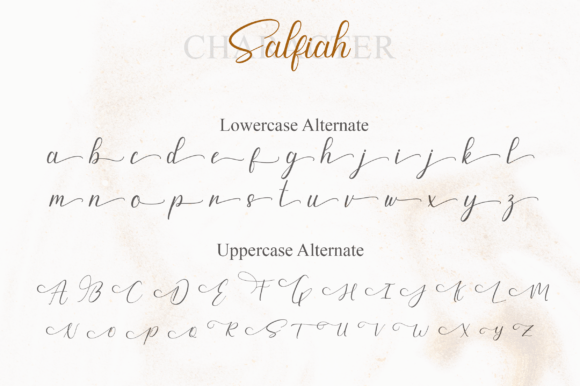 CHARACTER
Salfiah
Lowercase Alternate
a b c d e f g h j i j k l
m n o p r s t u v w x y z
Uppercase Alternate
A B C D E F G H I J K L M
N O P Q R S T U V W X Y Z